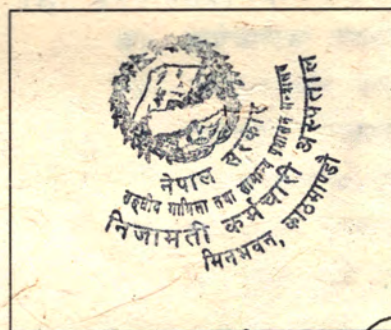 नेपाल सरकार
सङ्घीय मामिला तथा सामान्य प्रशासन मन्त्रालय
निजामती कर्मचारी अस्पताल
मिनभवन, काठमाण्डौ